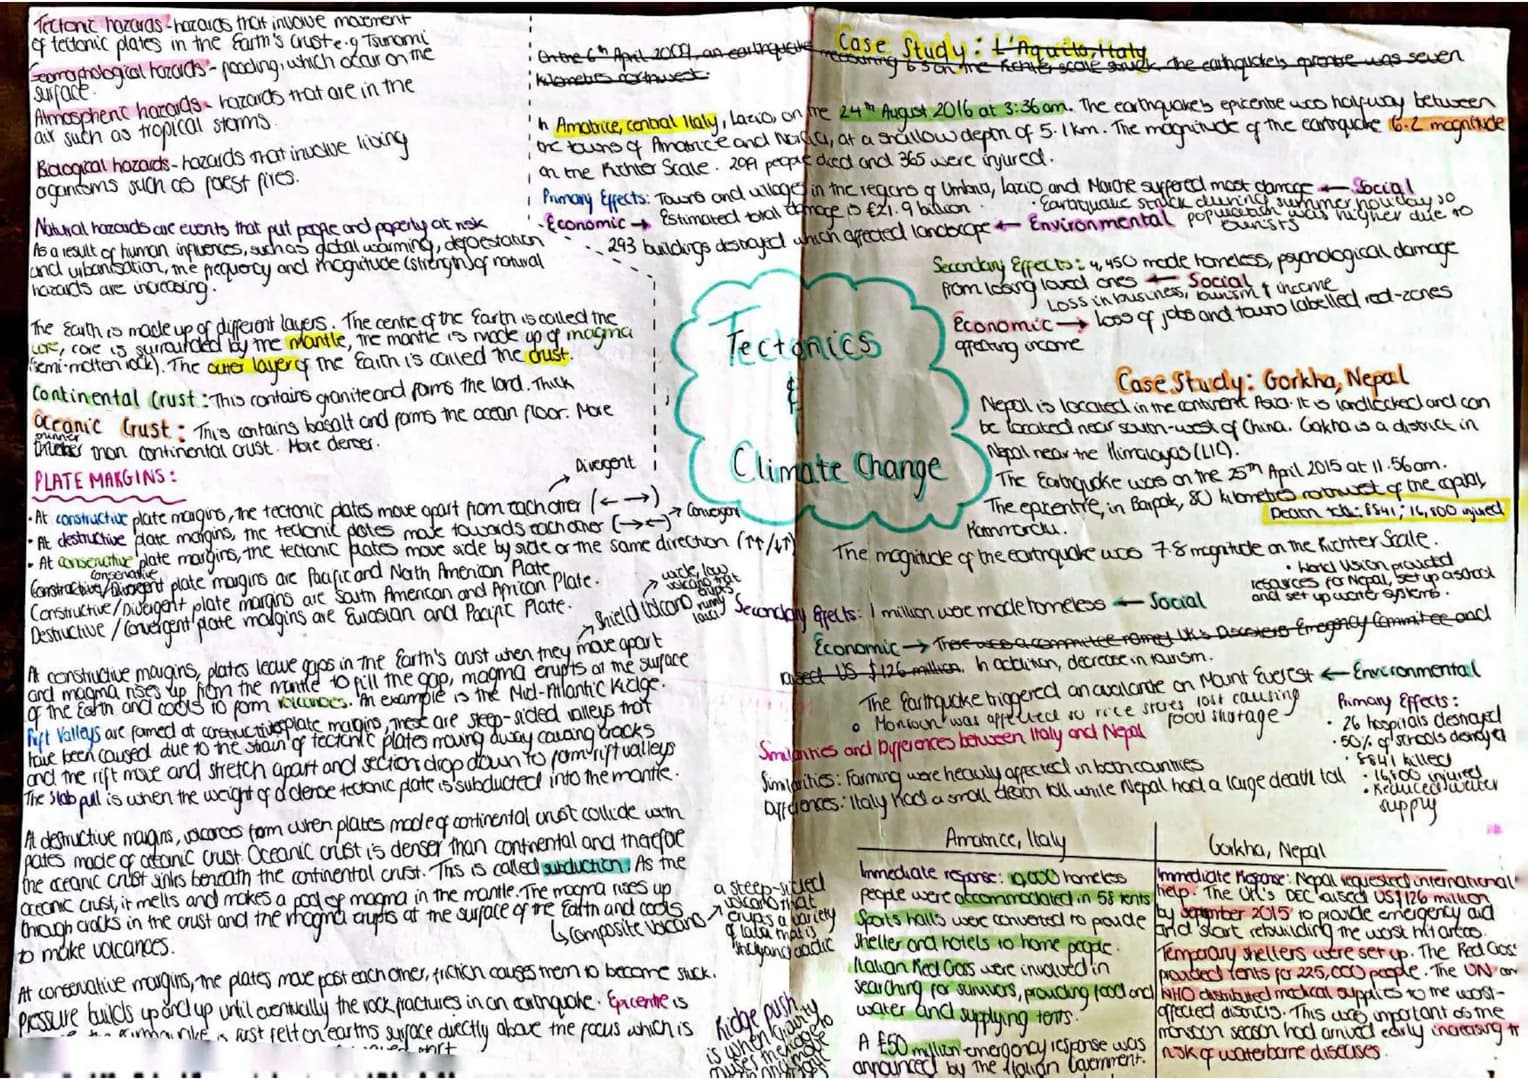 Tectonic hazards - hazards that involve movement
of tectonic plates in the Earth's crust e.g Tsunami
Geomorphological hazards - flooding, which occur on the
surface.
Atmospheric hazards - hazards that are in the
air such as tropical storms.
Biological hazards - hazards that involve living
organisms such as forest fires.
Natural hazards are events that put people and property at risk
As a result of human influences, such as global warming, deforestation
and urbanisation, the frequency and magnitude (strength) of natural
hazards are increasing.
The Earth is made up of different layers. The centre of the Earth is called the
core, core is surrounded by the mantle, the mantle is made up of magma
(semi-molten rock). The outer layer of the Earth is called the crust.
Continental Crust: This contains granite and forms the land. Thick
Oceanic Crust: This contains basalt and forms the ocean floor. More
thinner
thicker than continental crust. More denser.
PLATE MARGINS:
Divergent
• At constructive plate margins, the tectonic plates move apart from each other (← →)
• At destructive plate margins, the tectonic plates move towards each other (→ ←) → Convergent
• At conservative plate margins, the tectonic plates move side by side or the same direction (↑↑/↓↑)
conservative
Constructive/Divergent plate margins are Pacific and North American Plate
Constructive/Divergent plate margins are South American and African Plate.
Destructive/Convergent plate margins are Eurasian and Pacific Plate.
Shield volcano
wide, low
volcano that
erupts
runny
lava
At constructive margins, plates leave gaps in the Earth's crust when they move apart
and magma rises up from the mantle to fill the gap, magma erupts at the surface
of the Earth and cools to form volcanoes. An example is the Mid-Atlantic Ridge.
Rift Valleys are formed at constructive plate margins, these are steep-sided valleys that
have been caused due to the strain of tectonic plates moving away causing cracks
and the rift move and stretch apart and section drop down to form rift valleys
The slab pull is when the weight of a dense tectonic plate is subducted into the mantle.
At destructive margins, volcanoes form when plates made of continental crust collide with
plates made of oceanic crust. Oceanic crust is denser than continental and therefore
the oceanic crust sinks beneath the continental crust. This is called subduction. As the
oceanic crust, it melts and makes a pool of magma in the mantle. The magma rises up
through cracks in the crust and the magma erupts at the surface of the Earth and cools
to make volcanoes.
↳ composite volcano
a steep-sided
volcano that
erupts a variety
of lava that is
thick and acidic
At conservative margins, the plates move past each other, friction causes them to become stuck.
Pressure builds up and up until eventually the rock fractures in an earthquake. Epicentre is
is first felt on earths surface directly above the focus which is
Ridge push
is when gravity
Tectonics
&
Climate Change
Case Study: L'Aquila, Italy
On the 6th April 2009, an earthquake measuring 6.3 on the Richter scale struck, the earthquake's epicentre was seven
kilometres northwest.
In Amatrice, central Italy, Lazio, on the 24th August 2016 at 3:36am. The earthquake's epicentre was halfway between
the towns of Amatrice and Norcia, at a shallow depth of 5.1km. The magnitude of the earthquake 6.2 magnitude
on the Richter Scale. 299 people died and 365 were injured.
Primary Effects: Towns and villages in the regions of Umbria, Lazio and Marche suffered most damage ← Social
• Earthquake struck during summer holiday so
population was higher due to
tourists
Economic → Estimated total damage is £21.9 billion.
293 buildings destroyed which affected landscape ← Environmental
Secondary Effects: 4,450 made homeless, psychological damage
from losing loved ones ← Social
Loss in business, tourism & income
Economic → loss of jobs and town labelled red-zones
affecting income
Case Study: Gorkha, Nepal
Nepal is located in the continent Asia. It is landlocked and can
be located near south-west of China. Gorkha is a district in
Nepal near the Himalayas (LIC).
The Earthquake was on the 25th April 2015 at 11.56am.
The epicentre, in Barpak, 80 kilometres northwest of the capital,
Kathmandu.
Death toll: 8841; 16,800 injured
The magnitude of the earthquake was 7.8 magnitude on the Richter Scale.
• World Vision provided
resources for Nepal, set up a school
and set up water systems.
Secondary Effects: 1 million were made homeless ← Social
Economic → There was a committee named UK's Disasters Emergency Committee and
raised US $126 million. In addition, decrease in tourism.
The Earthquake triggered an avalanche on Mount Everest ← Environmental
• Monsoon was affected so rice stores lost causing
food shortage
Primary Effects:
• 26 hospitals destroyed
• 50% of schools destroyed
• 8841 killed
• 16800 injured
• Reduced water
supply
Similarities and Differences between Italy and Nepal
Similarities: Farming were heavily affected in both countries
Differences: Italy had a small death toll while Nepal had a large death toll
Amatrice, Italy
Immediate response: 10,000 homeless
people were accommodated in 58 tents
Sports halls were converted to provide
shelter and hotels to home people.
Italian Red Cross were involved in
searching for survivors, providing food and
water and supplying tents.
A £50 million emergency response was
announced by the Italian Government.
Gorkha, Nepal
Immediate Response: Nepal requested international
help. The UK's DEC raised US$126 million
by september 2015 to provide emergency aid
and start rebuilding the worst hit areas.
Temporary shelters were set up. The Red Cross
provided tents for 225,000 people. The UN and
WHO distributed medical supplies to the worst-
affected districts. This was important as the
monsoon season had arrived early increasing the
risk of waterborne diseases.